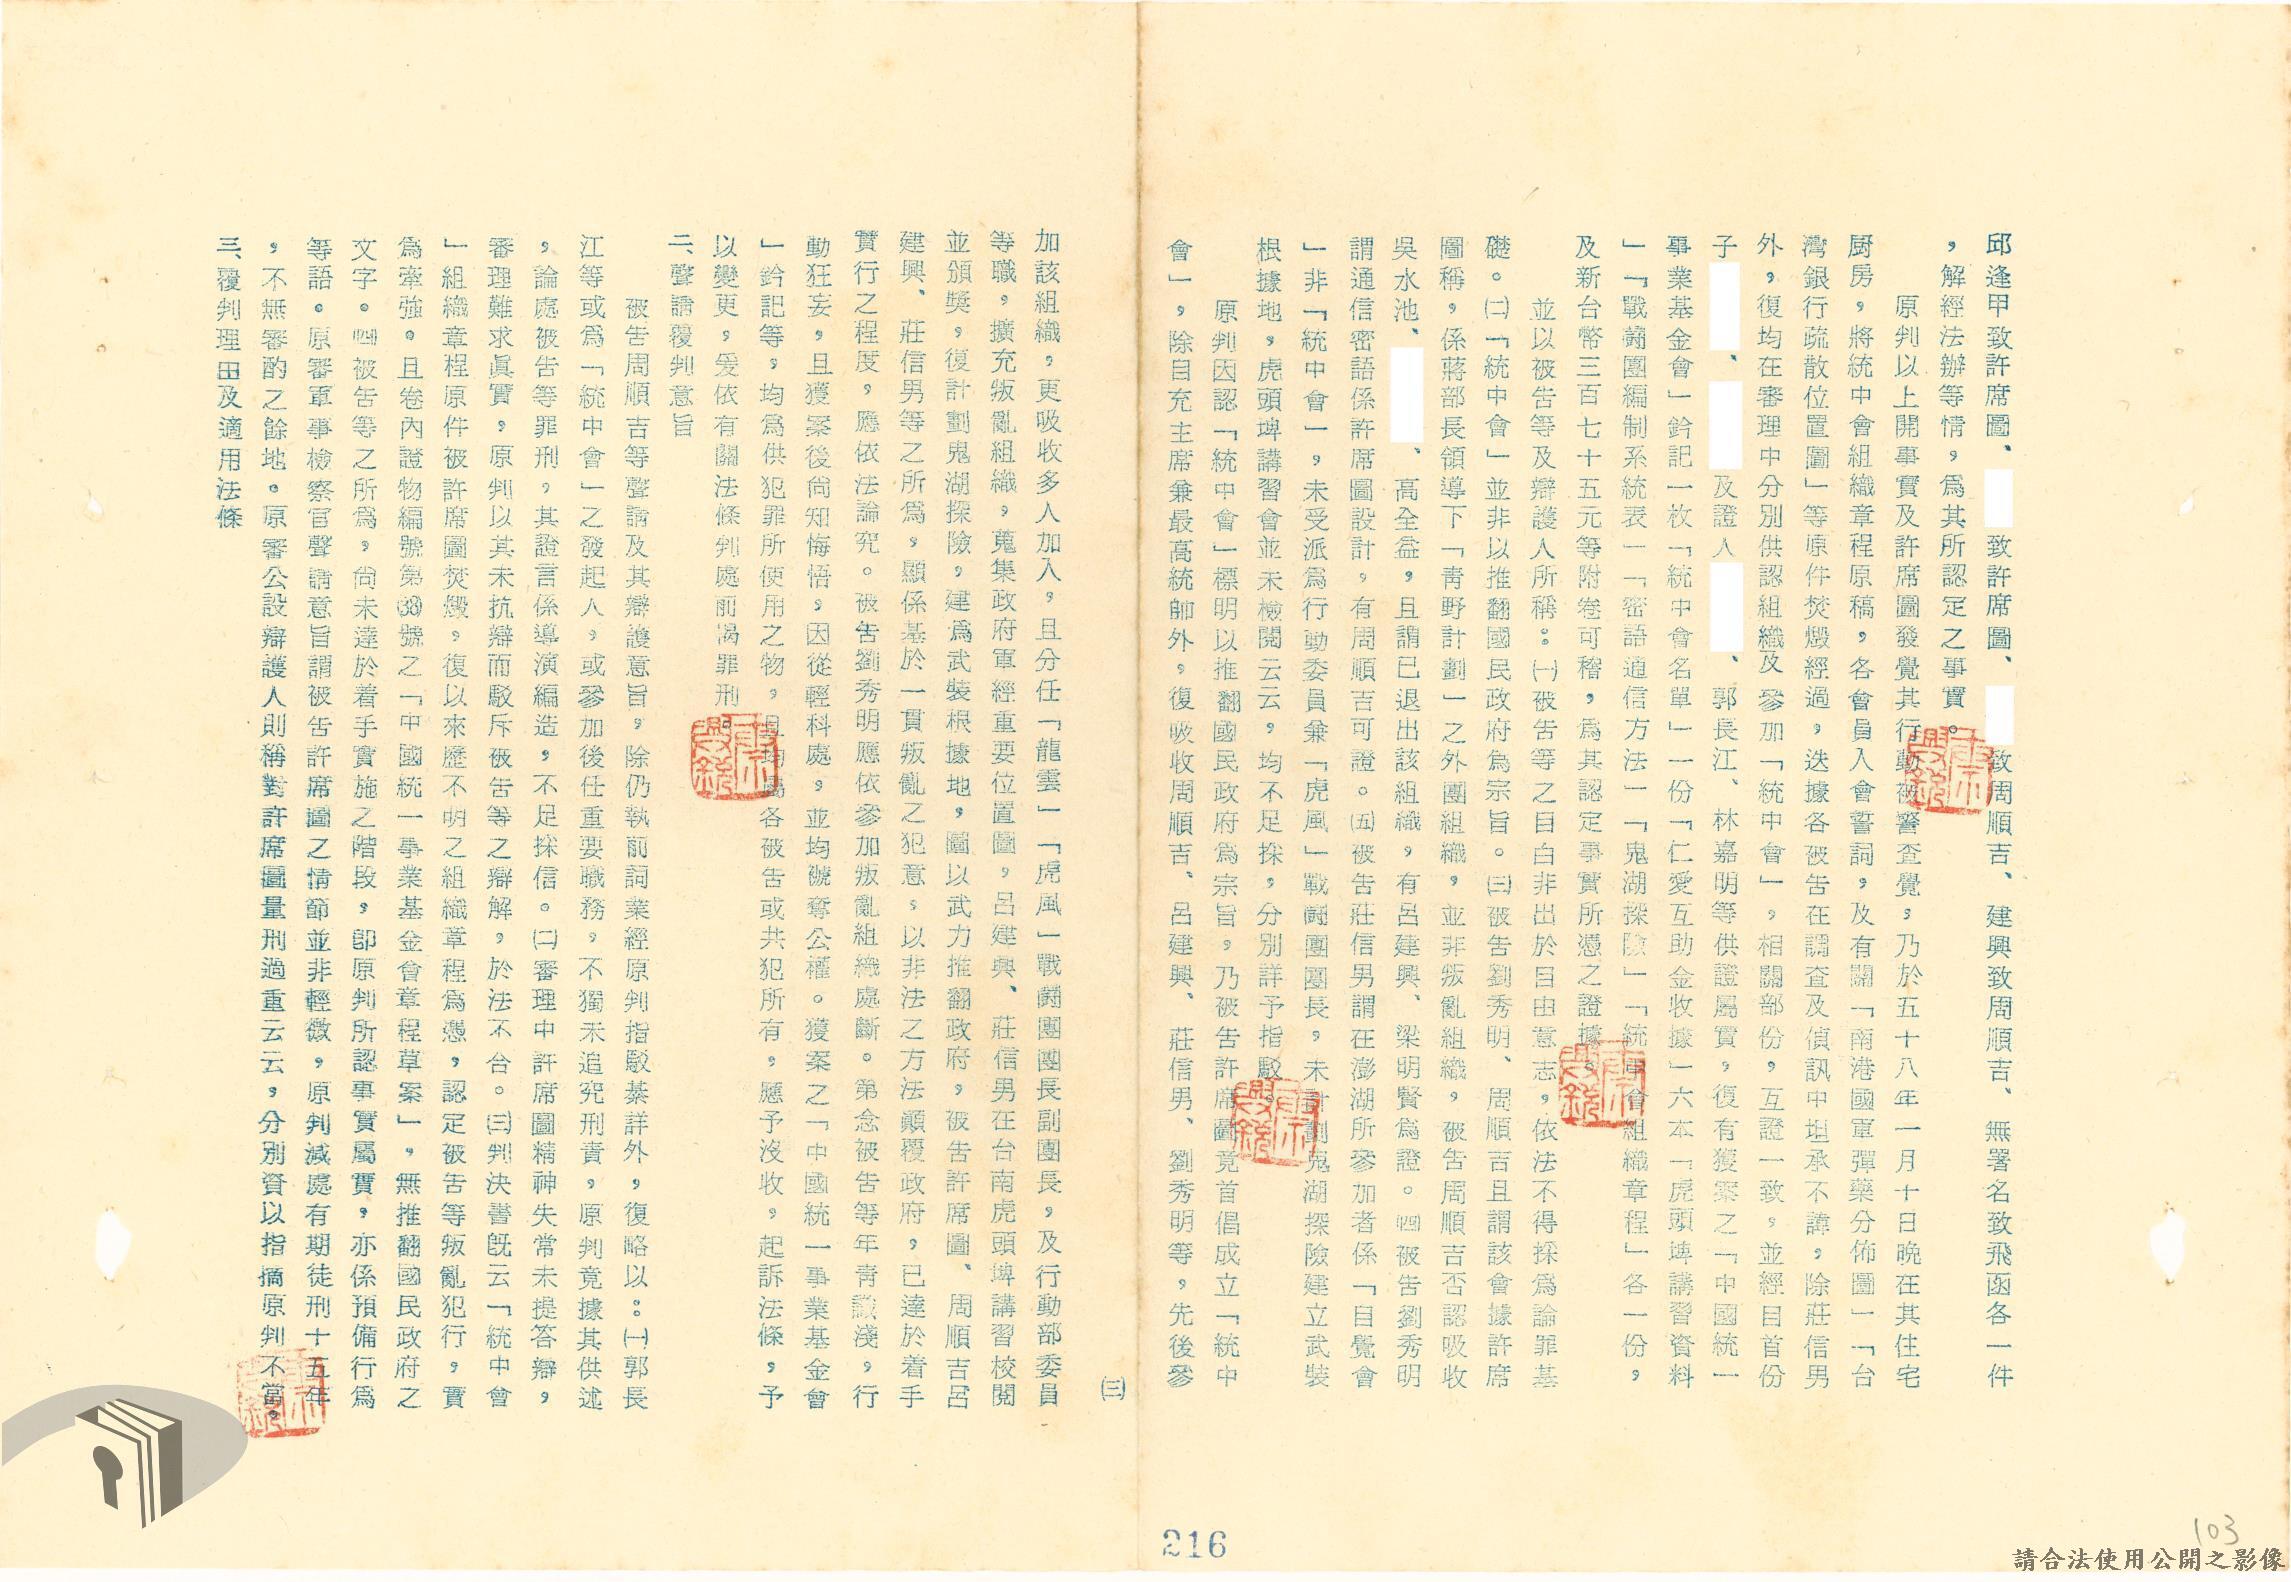 邱逢甲致許席圖、　致許席圖、　致周順吉、建興致周順吉、無署名致飛函各一件
，解經法辦等情，爲其所認定之事實。
原判以上開事實及許席圖發覺其行動被警查覺，乃於五十八年一月十日晚在其住宅
厨房，將統中會組織章程原稿，各會員入會誓詞，及有關「南港國軍彈藥分佈圖」「台
灣銀行疏散位置圖」等原件焚燬經過，迭據各被告在調查及偵訊中坦承不諱，除莊信男
外，復均在審理中分別供認組織及參加「統中會」，相關部份，互證一致，並經自首份
子　、　及證人　、郭長江、林嘉明等供證屬實，復有獲案之「中國統一
事業基金會」鈐記一枚「統中會名單」一份「仁愛互助金收據」六本「虎頭埤講習資料
」「戰鬪團編制系統表」「密語通信方法」「鬼湖探險」「統中會組織章程」各一份，
及新台幣三百七十五元等附卷可稽，爲其認定事實所憑之證據。
並以被告等及辯護人所稱：㈠被告等之自白非出於自由意志，依法不得採爲論罪基
礎。㈡「統中會」並非以推翻國民政府爲宗旨。㈢被告劉秀明、周順吉且謂該會據許席
圖稱，係蔣部長領導下「青野計劃」之外團組織，並非叛亂組織，被告周順吉否認吸收
吳水池、　、高全益，且謂已退出該組織，有呂建興、梁明賢爲證。㈣被告劉秀明
謂通信密語係許席圖設計，有周順吉可證。㈤被告莊信男謂在澎湖所參加者係「自覺會
」非「統中會」，未受派爲行動委員兼「虎風」戰鬪團團長，未計劃鬼湖探險建立武裝
根據地，虎頭埤講習會並未檢閱云云，均不足採，分別詳予指駁。
原判因認「統中會」標明以推翻國民政府爲宗旨，乃被告許席圖竟首倡成立「統中
會」，除自充主席兼最高統帥外，復吸收周順吉、呂建興、莊信男、劉秀明等，先後參
㈢
加該組織，更吸收多人加入，且分任「龍雲」「虎風」戰鬪團團長副團長，及行動部委員
等職，擴充叛亂組織，蒐集政府軍經重要位置圖，呂建興、莊信男在台南虎頭埤講習校閱
並頒獎，復計劃鬼湖探險，建爲武裝根據地，圖以武力推翻政府，被告許席圖、周順吉呂
建興、莊信男等之所爲，顯係基於一貫叛亂之犯意，以非法之方法顚覆政府，已達於着手
實行之程度，應依法論究。被告劉秀明應依參加叛亂組織處斷。第念被告等年青識淺，行
動狂妄，且獲案後尙知悔悟，因從輕科處，並均褫奪公權。獲案之「中國統一事業基金會
」鈐記等，均爲供犯罪所使用之物，且均屬各被告或共犯所有，應予沒收，起訴法條，予
以變更，爰依有關法條判處前揭罪刑。
二、聲請覆判意旨
被告周順吉等聲請及其辯護意旨，除仍執前詞業經原判指駁綦詳外，復略以：㈠郭長
江等或爲「統中會」之發起人，或參加後任重要職務，不獨未追究刑責，原判竟據其供述
，論處被告等罪刑，其證言係導演編造，不足採信。㈡審理中許席圖精神失常未提答辯，
審理難求眞實，原判以其未抗辯而駁斥被告等之辯解，於法不合。㈢判決書旣云「統中會
」組織章程原件被許席圖焚燬，復以來歷不明之組織章程爲憑，認定被告等叛亂犯行，實
爲牽強。且卷內證物編號第㊳號之「中國統一事業基金會章程草案」，無推翻國民政府之
文字。㈣被告等之所爲，尙未達於着手實施之階段，卽原判所認事實屬實，亦係預備行爲
等語。原審軍事檢察官聲請意旨謂被告許席圖之情節並非輕微，原判減處有期徒刑十五年
，不無審酌之餘地。原審公設辯護人則稱對許席圖量刑過重云云，分別資以指摘原判不當。
三、覆判理由及適用法條
216
103
請合法使用公開之影像